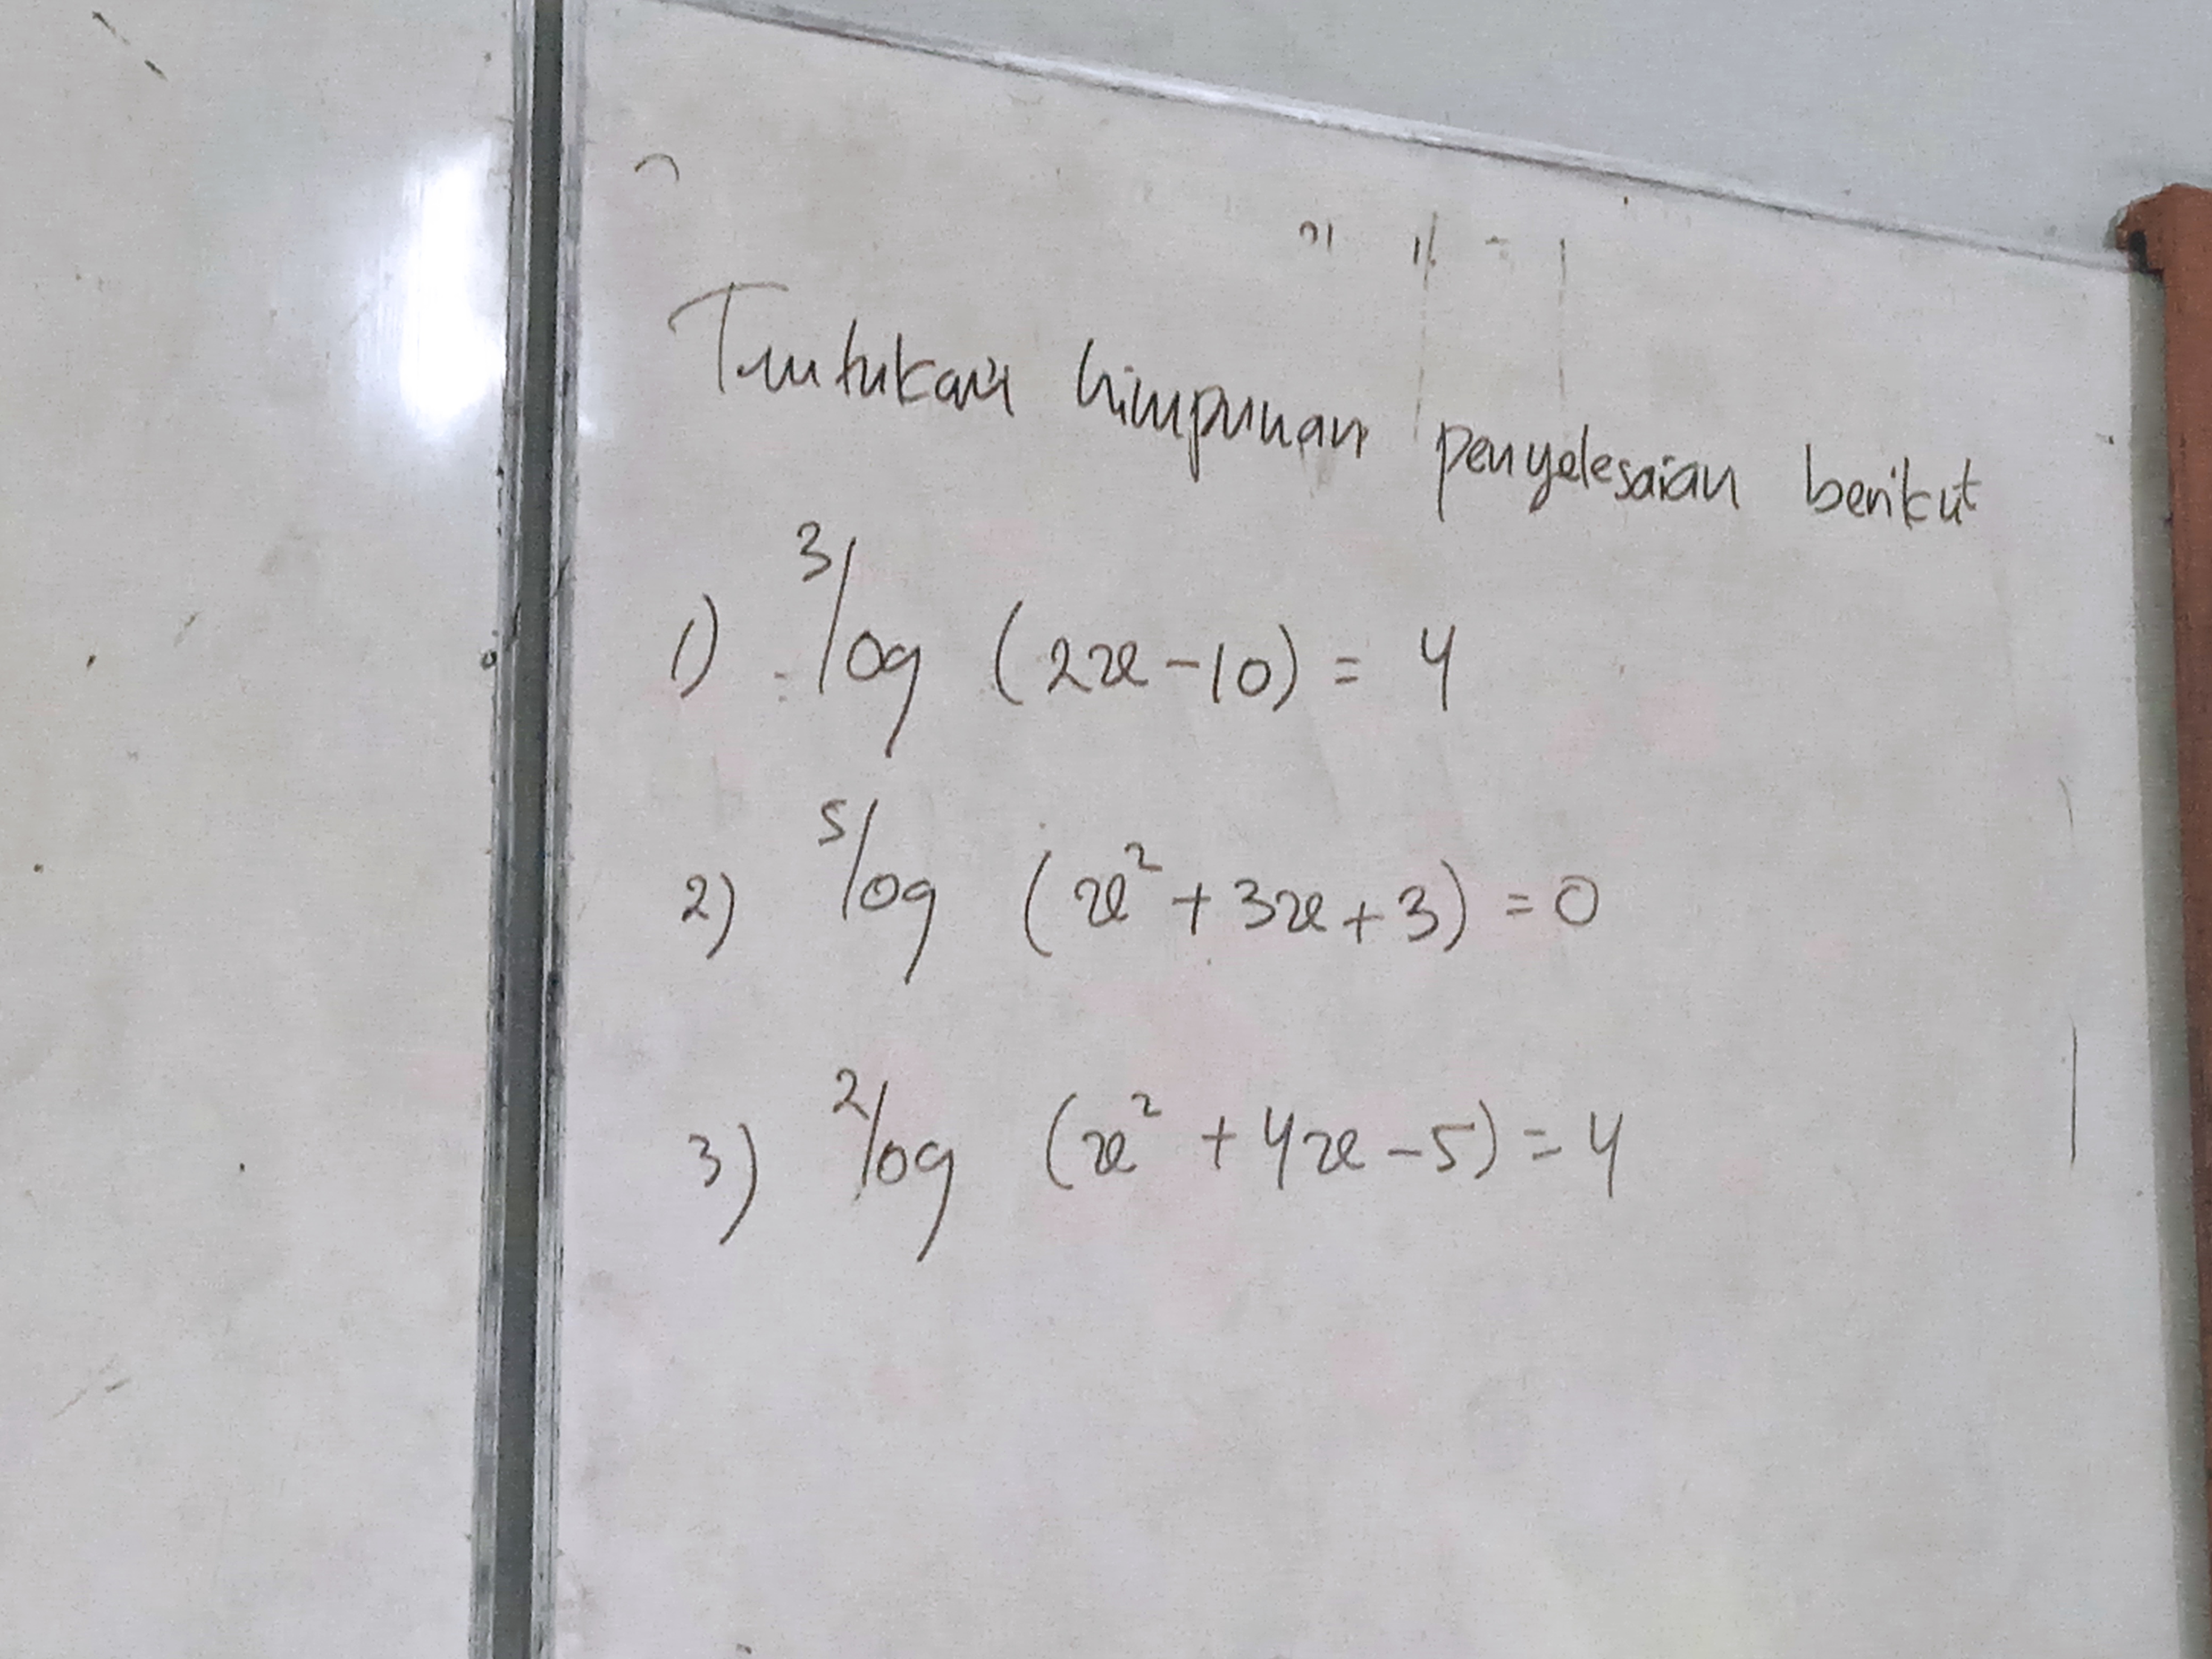 Tentukan himpunan penyelesaian berikut
1) ³log (2x-10) = 4
2) ⁵log (x²+3x+3) = 0
3) ²log (x² + 4x-5) = 4